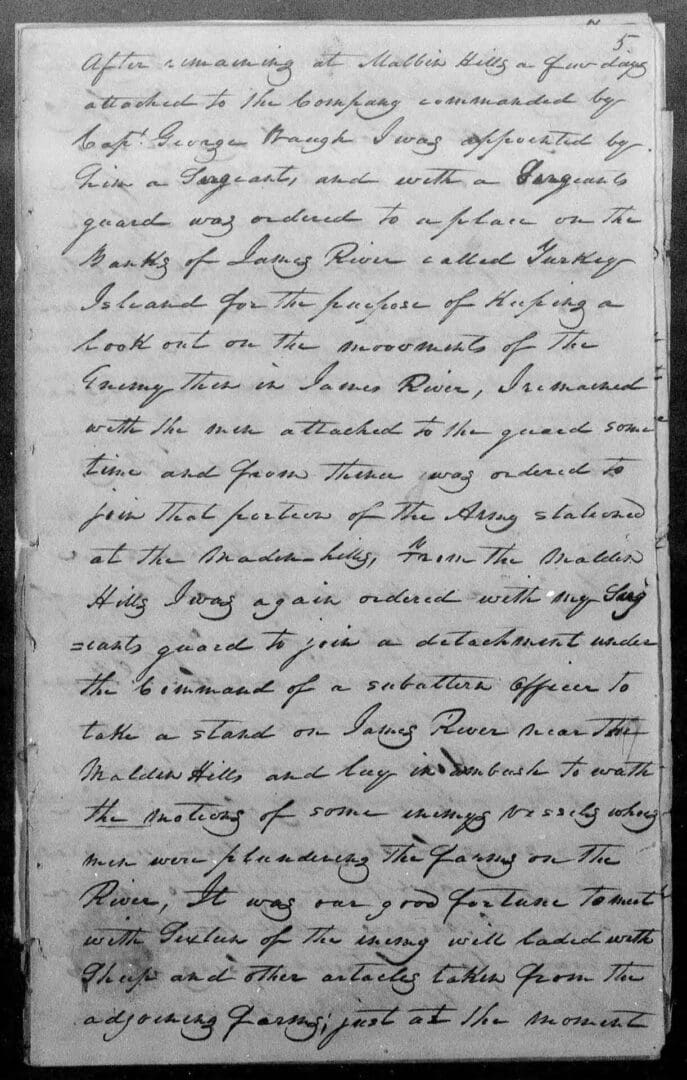 5
After remaining at Malbin Hills a few days
attached to the Company commanded by
Capt. George Baugh I was appointed by
him a Sergeant, and with a Sergeants
guard was ordered to a place on the
Banks of James River called Turkey
Island for the purpose of keeping a
look out on the moovments of the
Enemy then in James River, I remained
with the men attached to the guard some
time and from thence was ordered to
join that portion of the Army stationed
at the Maden-hills, From the Malden
Hills I was again ordered with my Serg
=eants guard to join a detachment under
the Command of a subaltern officer to
take a stand on James River near The
Malden Hills and lay in ambush to wath
the motions of some enemys vessels whoes
men were plundering the farms on the
River, It was our good fortune to meet
with Sixteen of the enemy well laded with
Sheep and other artacles taken from the
adjoining farms; just at the moment